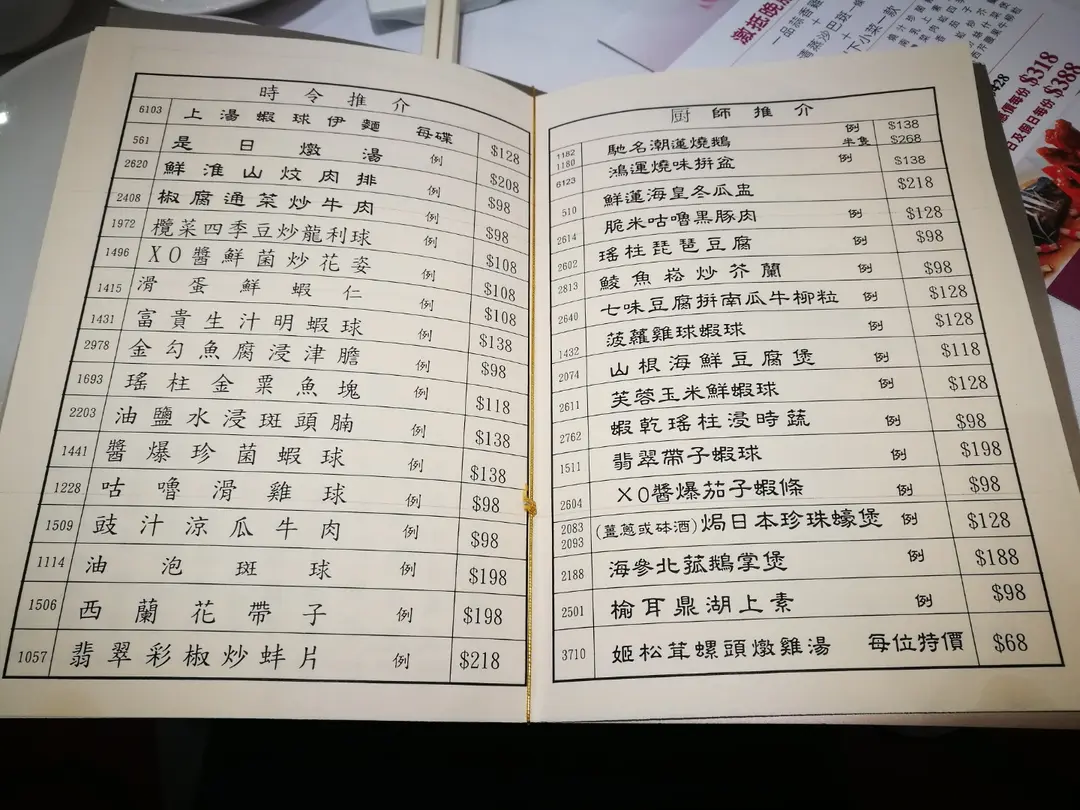 時令推介
6103 上湯蝦球伊麵 每碟 $128
561 是日燉湯 例 $208
2620 鮮淮山炆肉排 例 $98
2408 椒腐通菜炒牛肉 例 $98
1972 欖菜四季豆炒龍利球 例 $108
1496 XO醬鮮菌炒花姿 例 $108
1415 滑蛋鮮蝦仁 例 $108
1431 富貴生汁明蝦球 例 $138
2978 金勾魚腐浸津膽 例 $98
1693 瑤柱金粟魚塊 例 $118
2203 油鹽水浸斑頭腩 例 $138
1441 醬爆珍菌蝦球 例 $138
1228 咕嚕滑雞球 例 $98
1509 豉汁涼瓜牛肉 例 $98
1114 油泡斑球 例 $198
1506 西蘭花帶子 例 $198
1057 翡翠彩椒炒蚌片 例 $218
厨師推介
1182 馳名潮蓮燒鵝 例 $138
1180 半隻 $268
6123 鴻運燒味拼盆 例 $138
510 鮮蓮海皇冬瓜盅 $218
2614 脆米咕嚕黑豚肉 例 $128
2602 瑤柱琵琶豆腐 例 $98
2813 鯪魚崧炒芥蘭 例 $98
2640 七味豆腐拼南瓜牛柳粒 例 $128
1432 菠蘿雞球蝦球 例 $128
2074 山根海鮮豆腐煲 例 $118
2611 芙蓉玉米鮮蝦球 例 $128
2762 蝦乾瑤柱浸時蔬 例 $98
1511 翡翠帶子蝦球 例 $198
2604 XO醬爆茄子蝦條 例 $98
2083
2093 (薑蔥或砵酒)焗日本珍珠蠔煲 例 $128
2188 海參北菰鵝掌煲 例 $188
2501 榆耳鼎湖上素 例 $98
3710 姬松茸螺頭燉雞湯 每位特價 $68
激抵晚
$318
$388